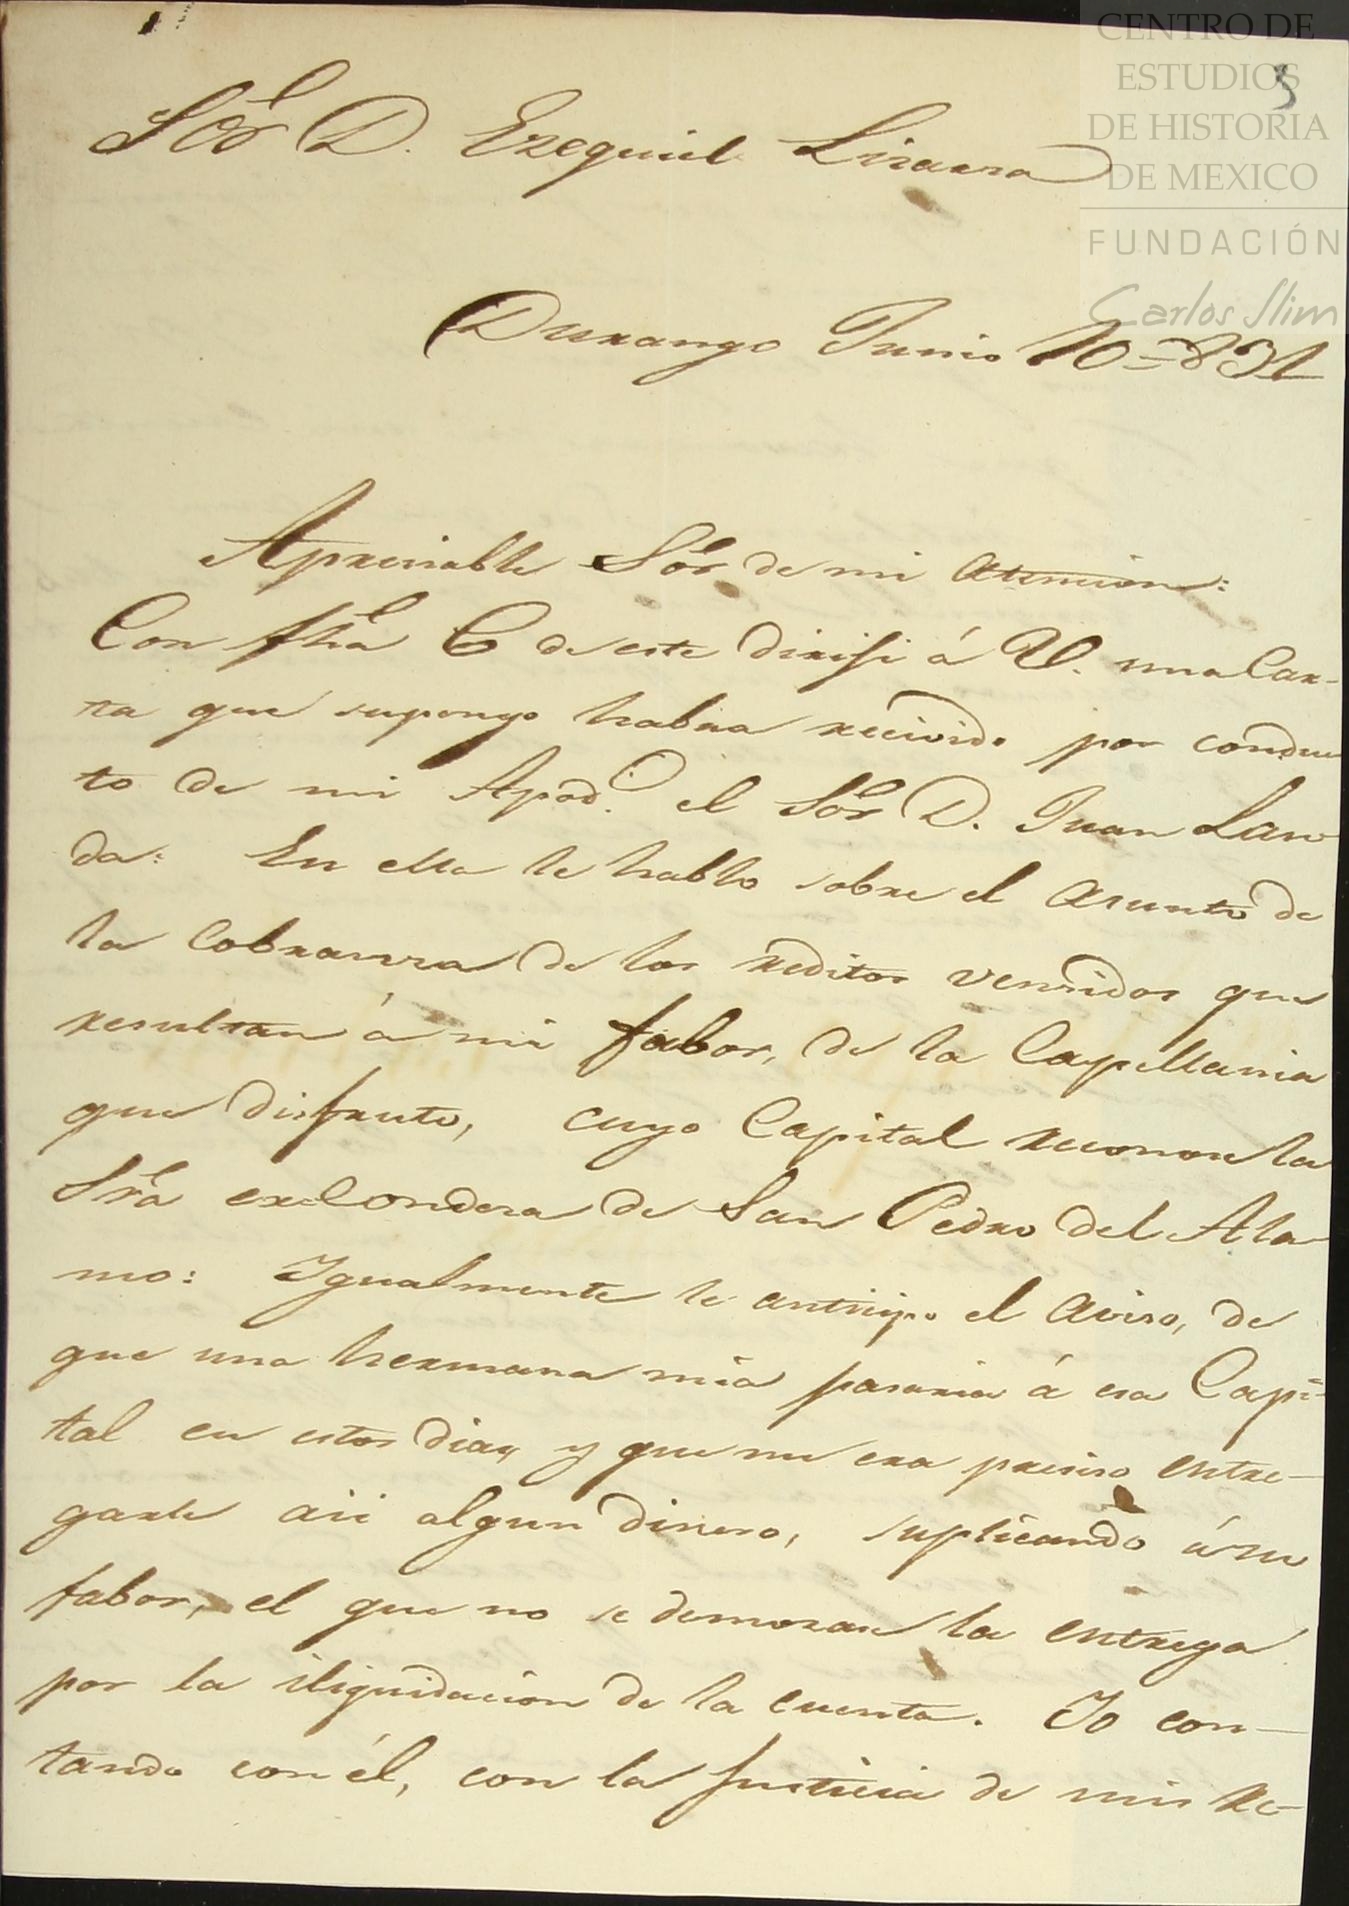 CENTRO DE
ESTUDIOS
DE HISTORIA
DE MEXICO
FUNDACIÓN
Carlos Slim
3
Sor. D. Ezequiel Lizarza
Durango Junio 10 831
Apreciable Sór de mi atencion:
Con fha 6 de este dirifi á V. una Car-
ta que supongo habra recivido por conduc
to de mi Apod.o el Sór D. Juan Lan
da: En ella le hablo sobre el asunto de
la Cobranza de los reditos vencidos que
resultan á mi fabor, de la Capellania
que disfruto, cuyo Capital reconoce la
Sra exCondesa de San Pedro del Ala
mo: Igualmente le anticipo el aviso, de
que una hermana mia pasaria á esa Capi-
tal en estos dias, y que me era preciso entre-
garle aii algun dinero, suplicando á su
fabor, el que no se demorase la entrega
por la iliquidacion de la cuenta. Yo con-
tando con él, con la Justicia de mis re-